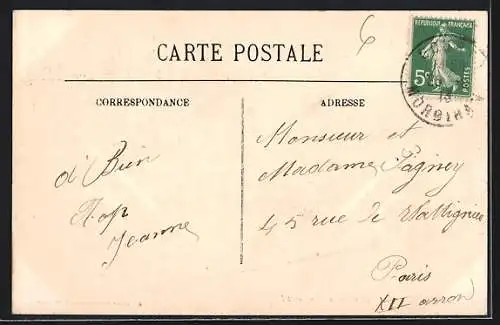 CARTE POSTALE
RÉPUBLIQUE FRANÇAISE
5c
POSTES
MORBIHAN
CORRESPONDANCE
ADRESSE
à Bien
Jeanne
Monsieur et
Madame Pagney
45 rue de Wattignies
Paris
XII arron